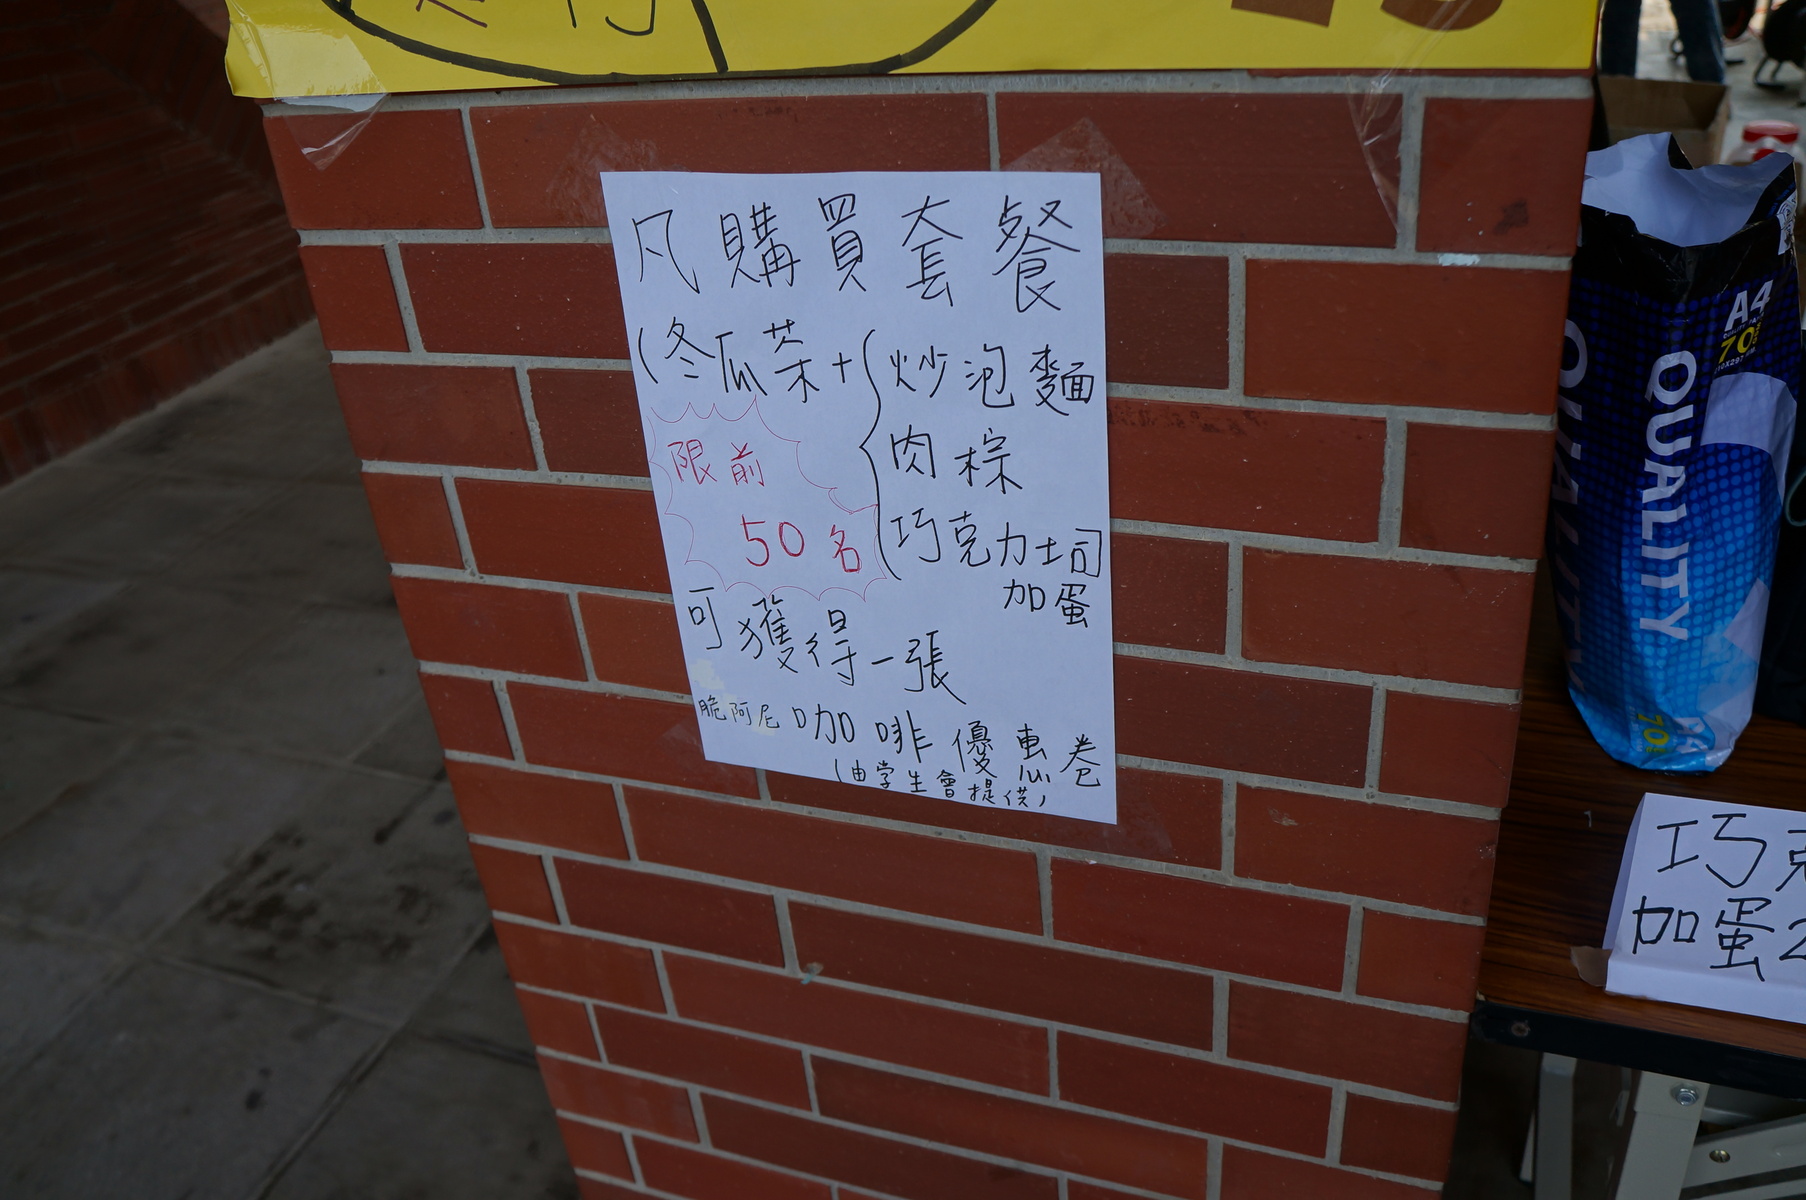 凡購買套餐
(冬瓜茶+(炒泡麵
肉棕
巧克力土司
加蛋
限前
50名
可獲得一張
脆阿尼咖啡優惠卷
(由学生會提供)
A4
70
QUALITY
QUALITY
70
巧克
加蛋2